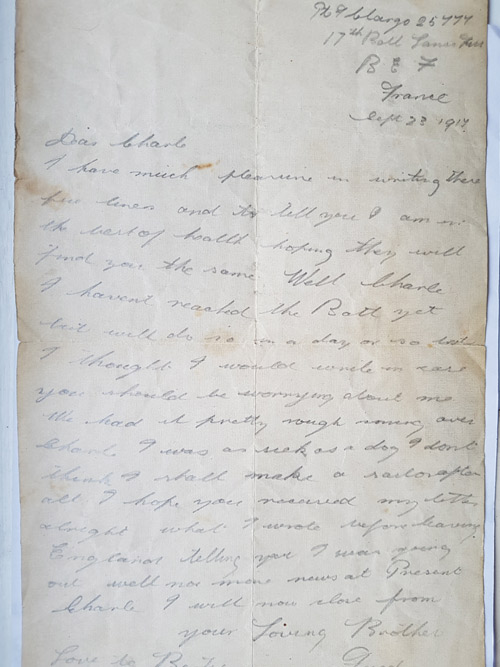 Clargo 25777
17th Batt Lancs Fus
B E F
France
Sept 23 1917
Dear Charle
I have much pleasure in writing these
few lines and to tell you I am in
the best of health hoping they will
find you the same Well Charle
I havent reached the Batt yet
but will do so in a day or so but
I thought I would write in case
you should be worrying about me
We had it pretty rough coming over
Charle I was as sick as a dog I dont
think I shall make a sailor after
all I hope you received my letter
alright what I wrote before leaving
England telling you I was going
out well no more news at Present
Charle I will now close from
your Loving Brother
Love to